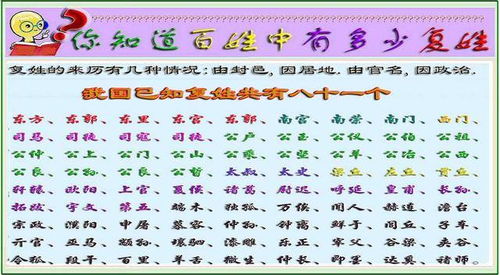 你知道百姓中有多少复姓
复姓的来历有几种情况:由封邑,因居地,由官名,因政治.
我国已知复姓共有八十一个
东方、东郭、东里、东宫、东郭、南宫、南荣、南门、西门、
司马、司徒、司寇、司徒、公户、公玉、公仪、公伯、公祖、
公仲、公上、公门、公山、公乘、公坚、公羊、公冶、公西、
公良、公孙、公晳、太叔、太史、梁丘、左丘、
轩辕、欧阳、上官、夏侯、诸葛、尉迟、呼延、皇甫、长孙、
拓跋、宇文、第五、端木、独孤、万俟、闻人、赫连、澹台、
宗政、濮阳、申屠、慕容、仲孙、钟离、鲜于、闾丘、子车、
亓官、巫马、颛孙、壤驷、漆雕、乐正、宰父、谷梁、夹谷、
令狐、段干、百里、羊舌、微生、仲长、即墨、达奚、诸师。